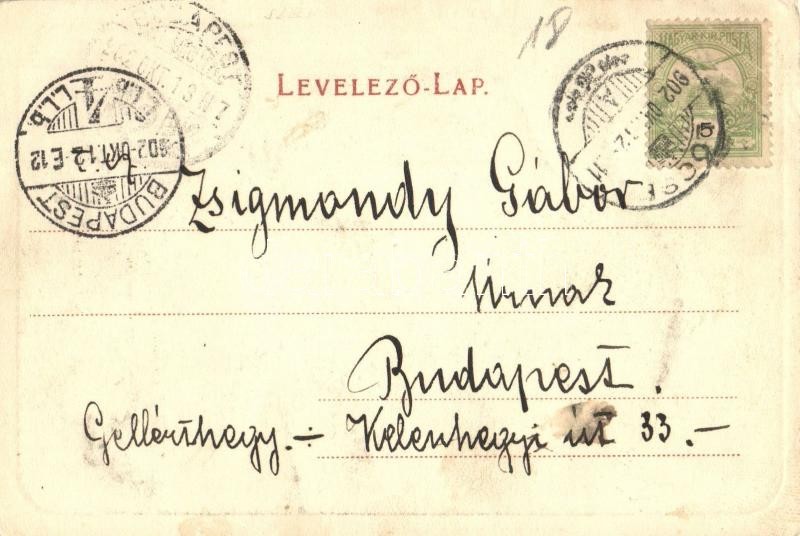 18
LEVELEZŐ-LAP.
MAGYAR KIR. POSTA
5
BUDAPEST
902 OKT. 12. E 12
4
Zsigmondy Gábor
Úrnak
Budapest.
Gellérthegy. ÷ Kelenhegyi út 33. –